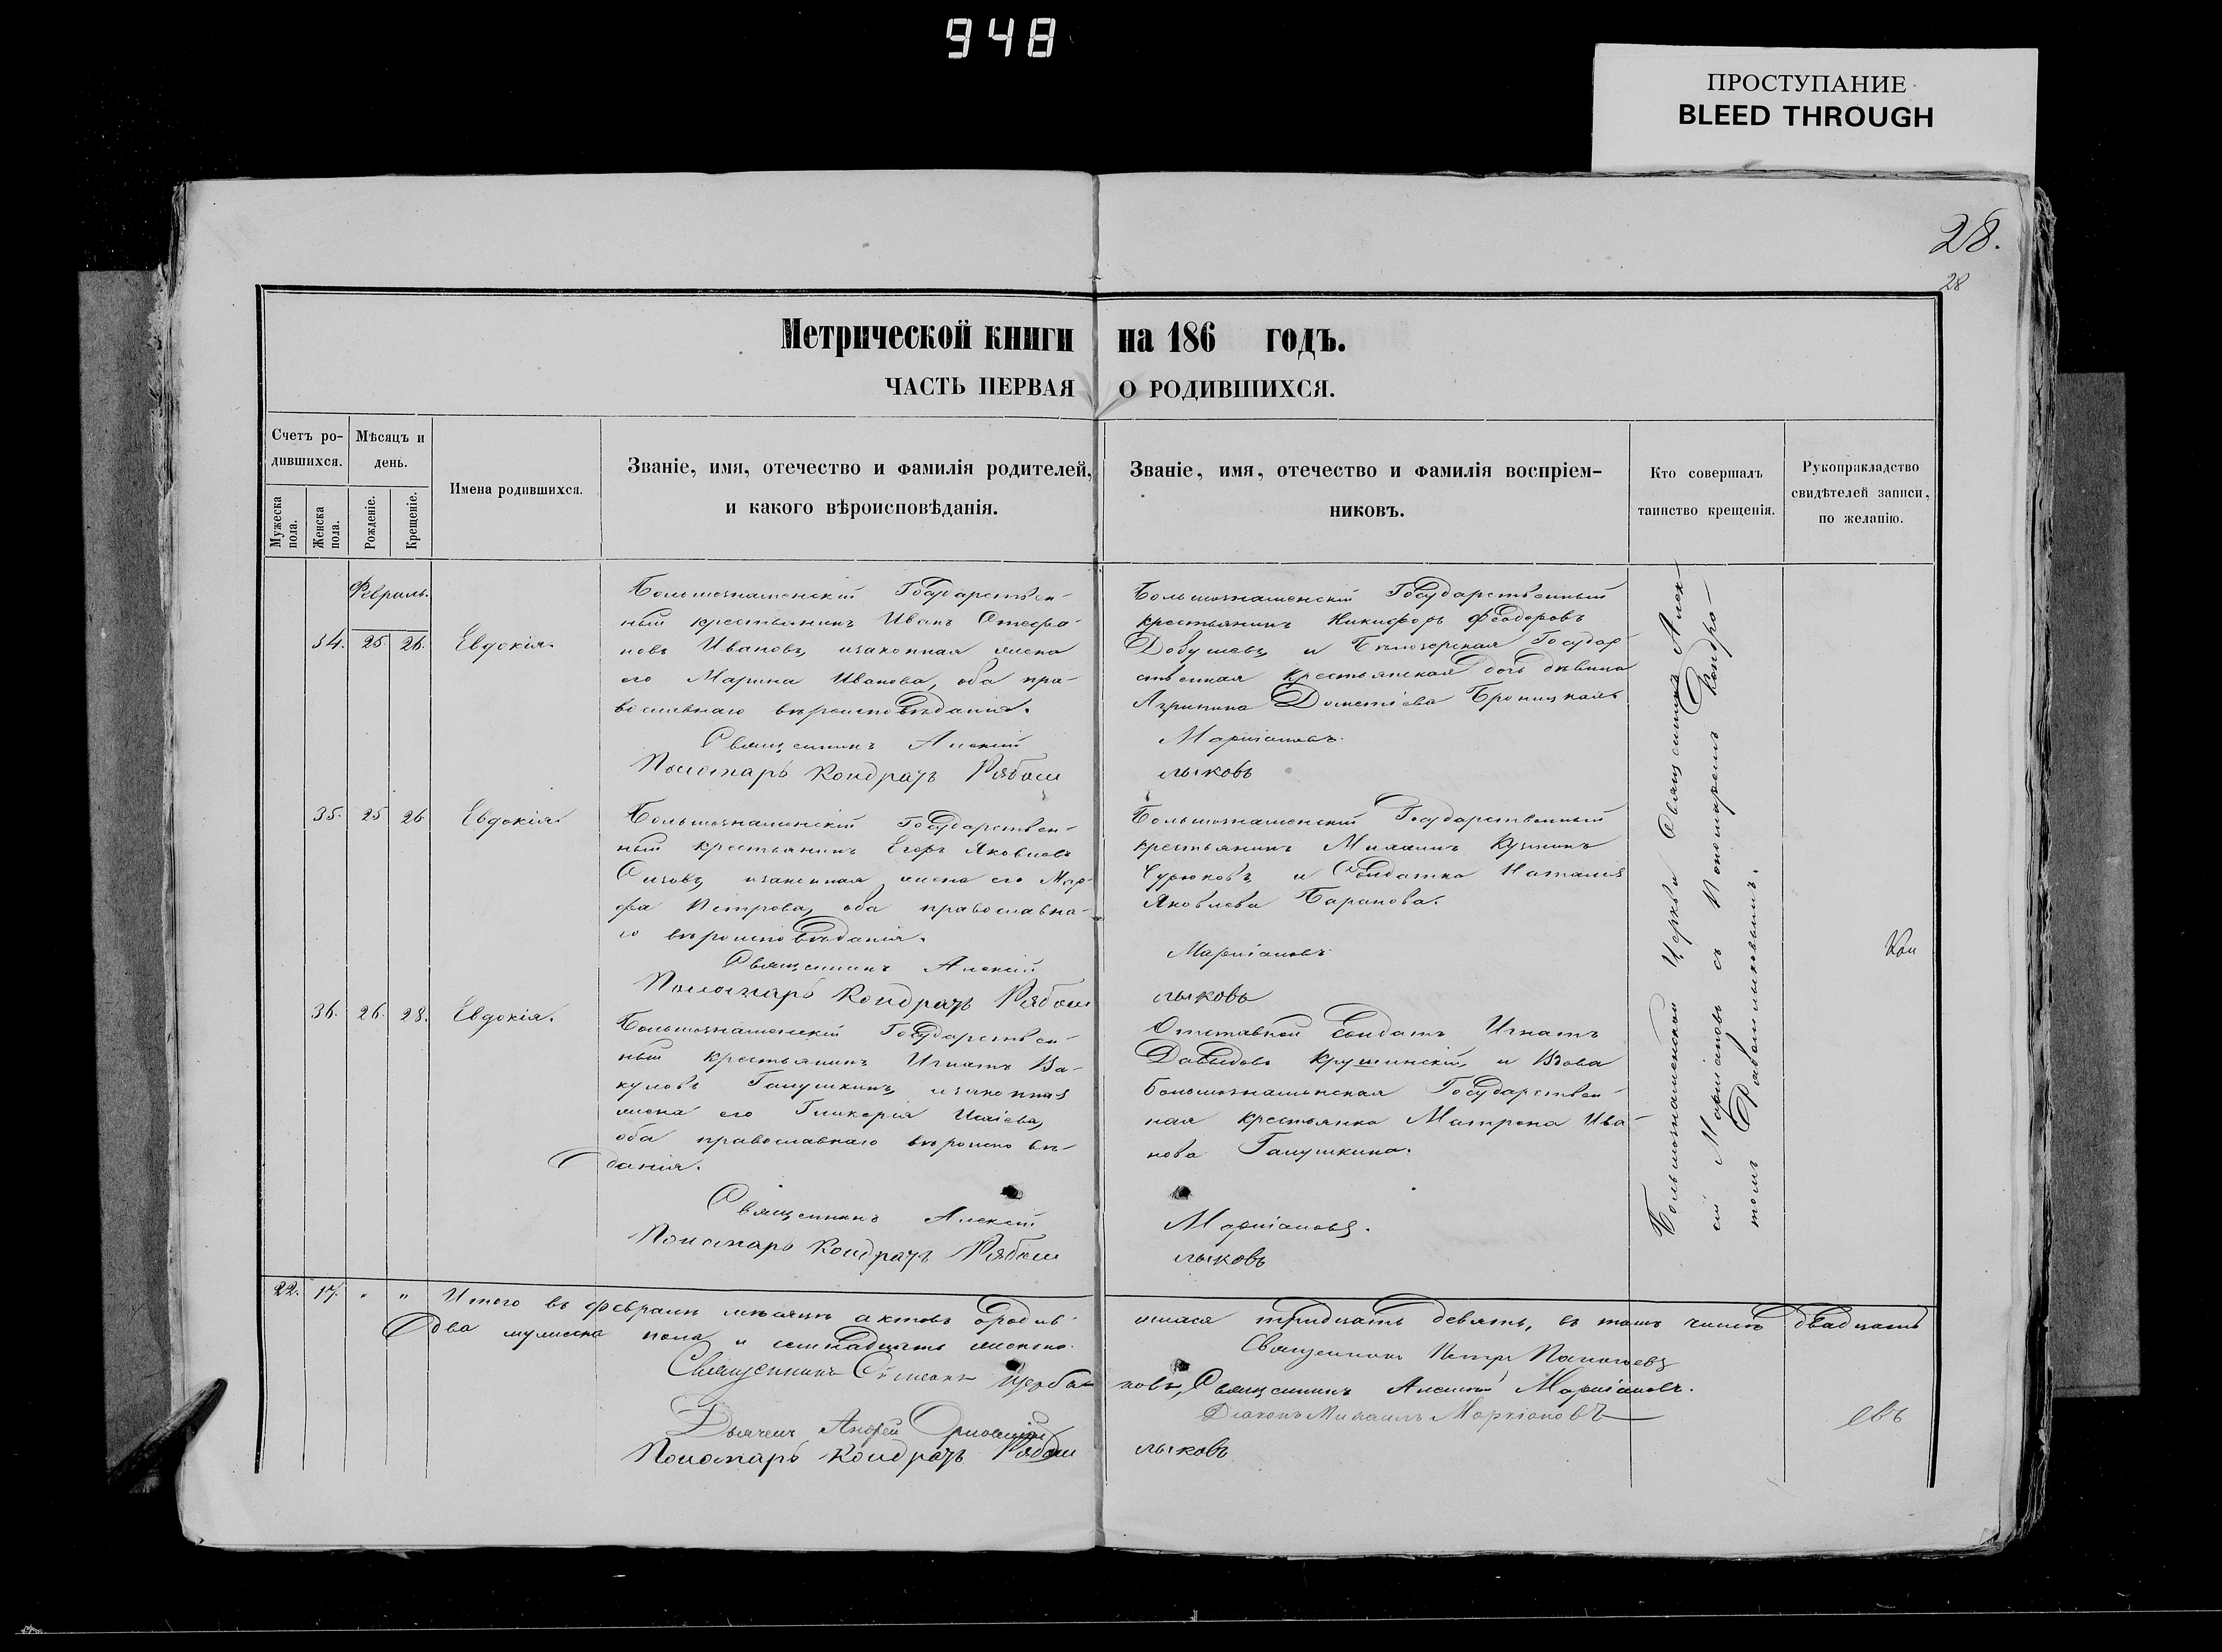 948
ПРОСТУПАНИЕ
BLEED THROUGH
28.
28
Метрической книги на 186 годъ.
ЧАСТЬ ПЕРВАЯ О РОДИВШИХСЯ.
Счетъ ро-
дившихся.
Мѣсяцъ и
день.
Мужеска
пола.
Женска
пола.
Рожденіе.
Крещеніе.
Имена родившихся.
Званіе, имя, отечество и фамилія родителей,
и какого вѣроисповѣданія.
Званіе, имя, отечество и фамилія воспріем-
никовъ.
Кто совершалъ
таинство крещенія.
Рукоприкладство
свидѣтелей записи,
по желанію.
Февраль.
34. 25. 26. Евдокія.
Большознаменскій Государствен-
ный крестьянинъ Иванъ Стефа-
новъ Ивановъ, изаконная жена
его Марина Иванова, оба пра-
вославнаго вѣроисповѣданія.
Священникъ Алексій
Пономарь Кондратъ Рябом
Большознаменскій Государственный
крестьянинъ Никифоръ Феодоровъ
и Бѣлозерская Государ-
ственная крестьянская дочь дѣвица
Агрипина Дометіева Броницкая
Маркіановъ.
лыковъ
35. 25 26 Евдокія.
Большознаменскій Государствен-
ный крестьянинъ Егоръ Яковлевъ
Сизовъ, изаконная жена его Мар-
фа Петрова, оба православна-
го вѣроисповѣданія.
Священникъ Алексій
Пономарь Кондратъ Рябом
Большознаменскій Государственный
крестьянинъ Михаилъ Кузминъ
и Солдатка Наталія
Яковлева Баранова.
Маркіановъ
лыковъ
36. 26. 28. Евдокія.
Большознаменскій Государствен-
ный крестьянинъ Игнатъ Ва-
куловъ Галушкинъ, изаконная
жена его Гликерія Исаіева,
оба православнаго вѣроисповѣ-
данія.
Священникъ Алексій
Пономарь Кондратъ Рябом
Отставной Солдатъ Игнатъ
Давыдовъ Крушинскій, и Вдова
большознаменская Государствен-
ная крестьянка Матрона Ива-
нова Галушкина.
Маркіановъ.
лыковъ
Большознаменской Церкви Священникъ Алек-
сій Маркіановъ съ Пономаремъ Кондра-
томъ Рабомлыковымъ.
22. 17. " " Итого въ Февралѣ мѣсяцѣ актовъ ородив-
шихся тридцать девять, въ томъ числѣ двадцать
два мужеска пола и семнадцать женска.
Священникъ Петръ
Священникъ Сѵмеонъ Щерба-
ковъ, Священникъ Алексій Маркіановъ.
Діаконъ Михаилъ Маркіановъ
Дьячекъ Андрей
Пономарь Кондратъ Рябом
лыковъ
евъ